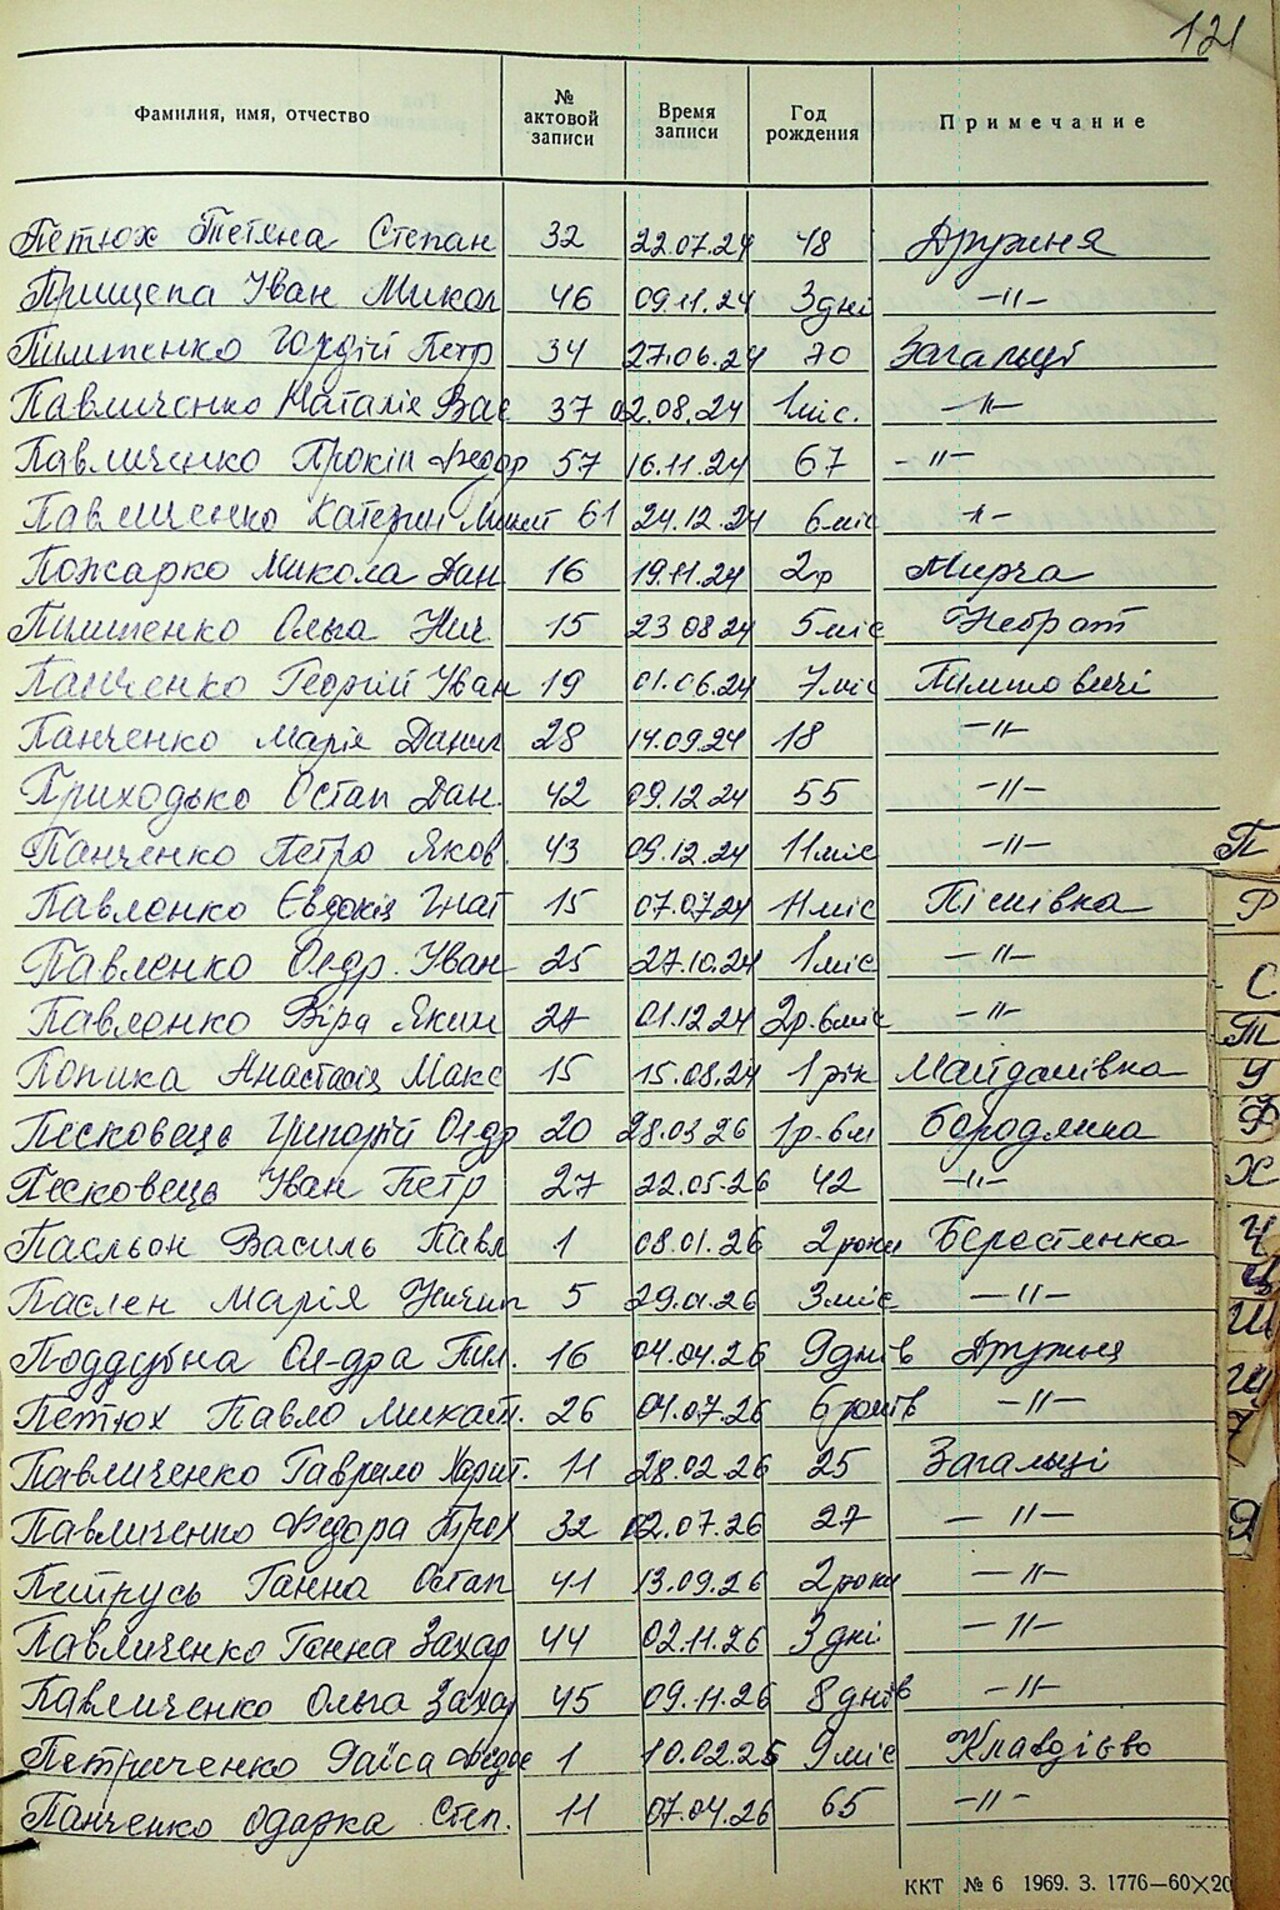 121
Фамилия, имя, отчество № актовой записи Время записи Год рождения Примечание
Петюх Тетяна Степан 32 22.07.24 48 Дружня
Прищепа Іван Микол 46 09.11.24 3 дні -"-
Пилипенко Гордій Петр 34 27.06.24 70 Загальці
Павличенко Наталія Вас 37 02.08.24 1 міс. -"-
Павличенко Прокіп Федор 57 16.11.24 67 -"-
Павличенко Катерин Микит 61 24.12.24 6 міс -"-
Пожарко Микола Дан 16 19.11.24 2 р Мирча
Пилипенко Ольга Нич 15 23 08 24 5 міс Небрат
Панченко Георгій Іван 19 01.06.24 7 міс Пилиповичі
Панченко Марія Данил 28 14.09.24 18 -"-
Приходько Остап Дан. 42 09.12.24 55 -"-
Панченко Петро Яков. 43 09.12.24 11 міс -"-
П
Павленко Євдокія Гнат 15 07.07.24 11 міс Пісківка
Р
Павленко Ол-др. Іван 25 27.10.24 1 міс -"-
С
Павленко Віра Яким 27 01.12.24 2 р. 6 міс -"-
Т
Попика Анастасія Макс 15 15.08.24 1 рік Майданівка
У
Песковець Григорій Ол-др 20 28.03 26 1 р. 6 м Бородянка
Ф
Песковець Іван Петр 27 22.05.26 42 -"-
Х
Пасльон Василь Павл 1 08.01.26 2 роки Берестянка
Ч
Ц
Паслен Марія Ничип 5 29.01.26 3 міс -"-
Ш
Поддубна Ол-дра Пил. 16 04.04.26 9 днів Дружня
Щ
Петюх Павло Микит. 26 04.07.26 6 років -"-
Павличенко Гаврило Харит. 11 28.02.26 25 Загальці
Павличенко Федора Прох 32 02.07.26 27 -"-
Я
Петрусь Ганна Остап 41 13.09.26 2 роки -"-
Павличенко Ганна Захар 44 02.11.26 3 дні -"-
Павличенко Ольга Захар 45 09.11.26 8 днів -"-
Петриченко Раїса Федос 1 10.02.26 9 міс Клавдієво
Панченко Одарка Степ. 11 07.04.26 65 -"-
ККТ № 6 1969. З. 1776—60×20